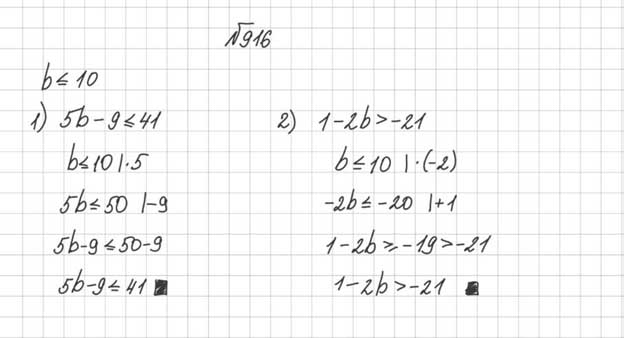 №916
b ≤ 10
1) 5b - 9 ≤ 41
b ≤ 10 | · 5
5b ≤ 50 | -9
5b - 9 ≤ 50 - 9
5b - 9 ≤ 41 ■
2) 1 - 2b > -21
b ≤ 10 | · (-2)
-2b ≤ -20 | +1
1 - 2b ≥ -19 > -21
1 - 2b > -21 ■